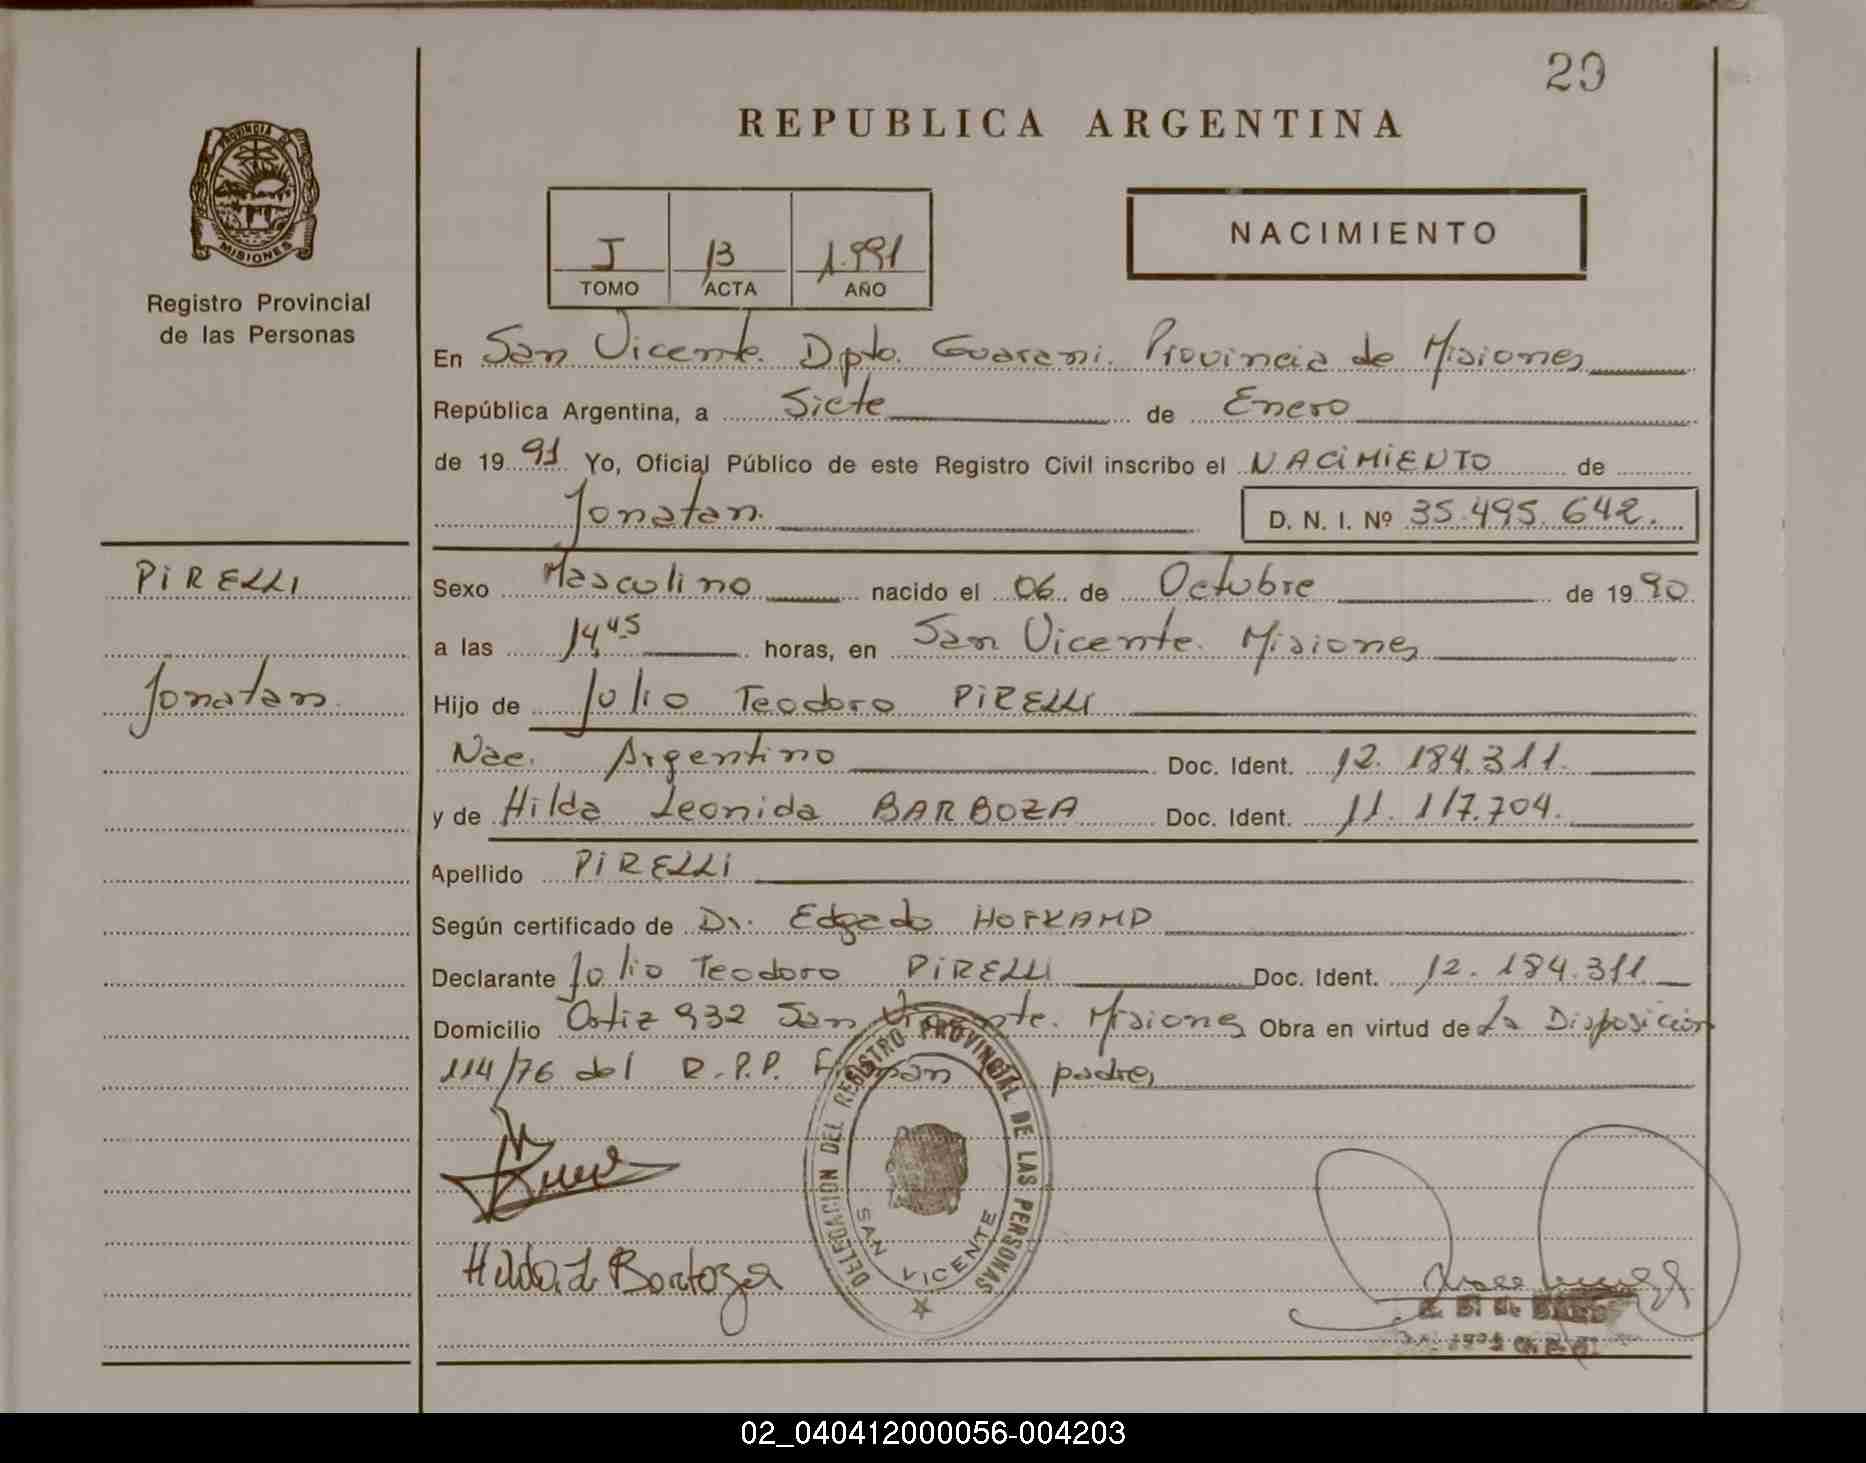 29
REPUBLICA ARGENTINA
PROVINCIA DE
MISIONES
Registro Provincial
de las Personas
I 13 1.991
TOMO ACTA AÑO
NACIMIENTO
En San Vicente. Dpto. Guarani. Provincia de Misiones
República Argentina, a Siete de Enero
de 1991 Yo, Oficial Público de este Registro Civil inscribo el NACIMIENTO de
Jonatan. D. N. I. Nº 35.495.642.
PIRELLI
Jonatan.
Sexo Masculino nacido el 06 de Octubre de 1990
a las 14,45 horas, en San Vicente. Misiones
Hijo de Julio Teodoro PIRELLI
Nac. Argentino Doc. Ident. 12.184.311.
y de Hilda Leonida BARBOZA Doc. Ident. 11.117.704.
Apellido PIRELLI
Según certificado de Dr. Edgado HOFKAMP
Declarante Julio Teodoro PIRELLI Doc. Ident. 12.184.311
Domicilio Ortiz 932 San Vicente. Misiones Obra en virtud de La Disposición
114/76 del R.P.P. Firman padres
DELEGACION DEL REGISTRO PROVINCIAL DE LAS PERSONAS
SAN VICENTE
Hilda L Barboza
02_040412000056-004203